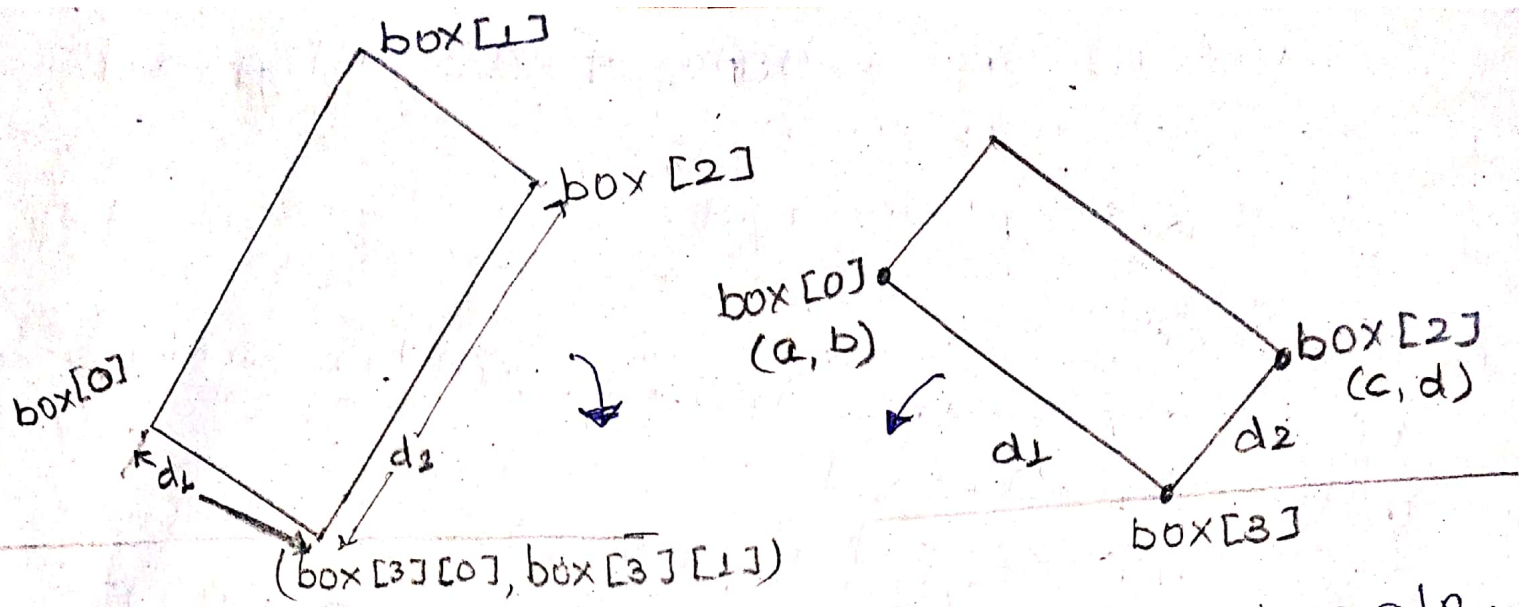 box[1]
box [2]
box[0]
d1
d2
(box[3][0], box[3][1])
box [0]
(a, b)
box [2]
(c, d)
d1
d2
box[3]